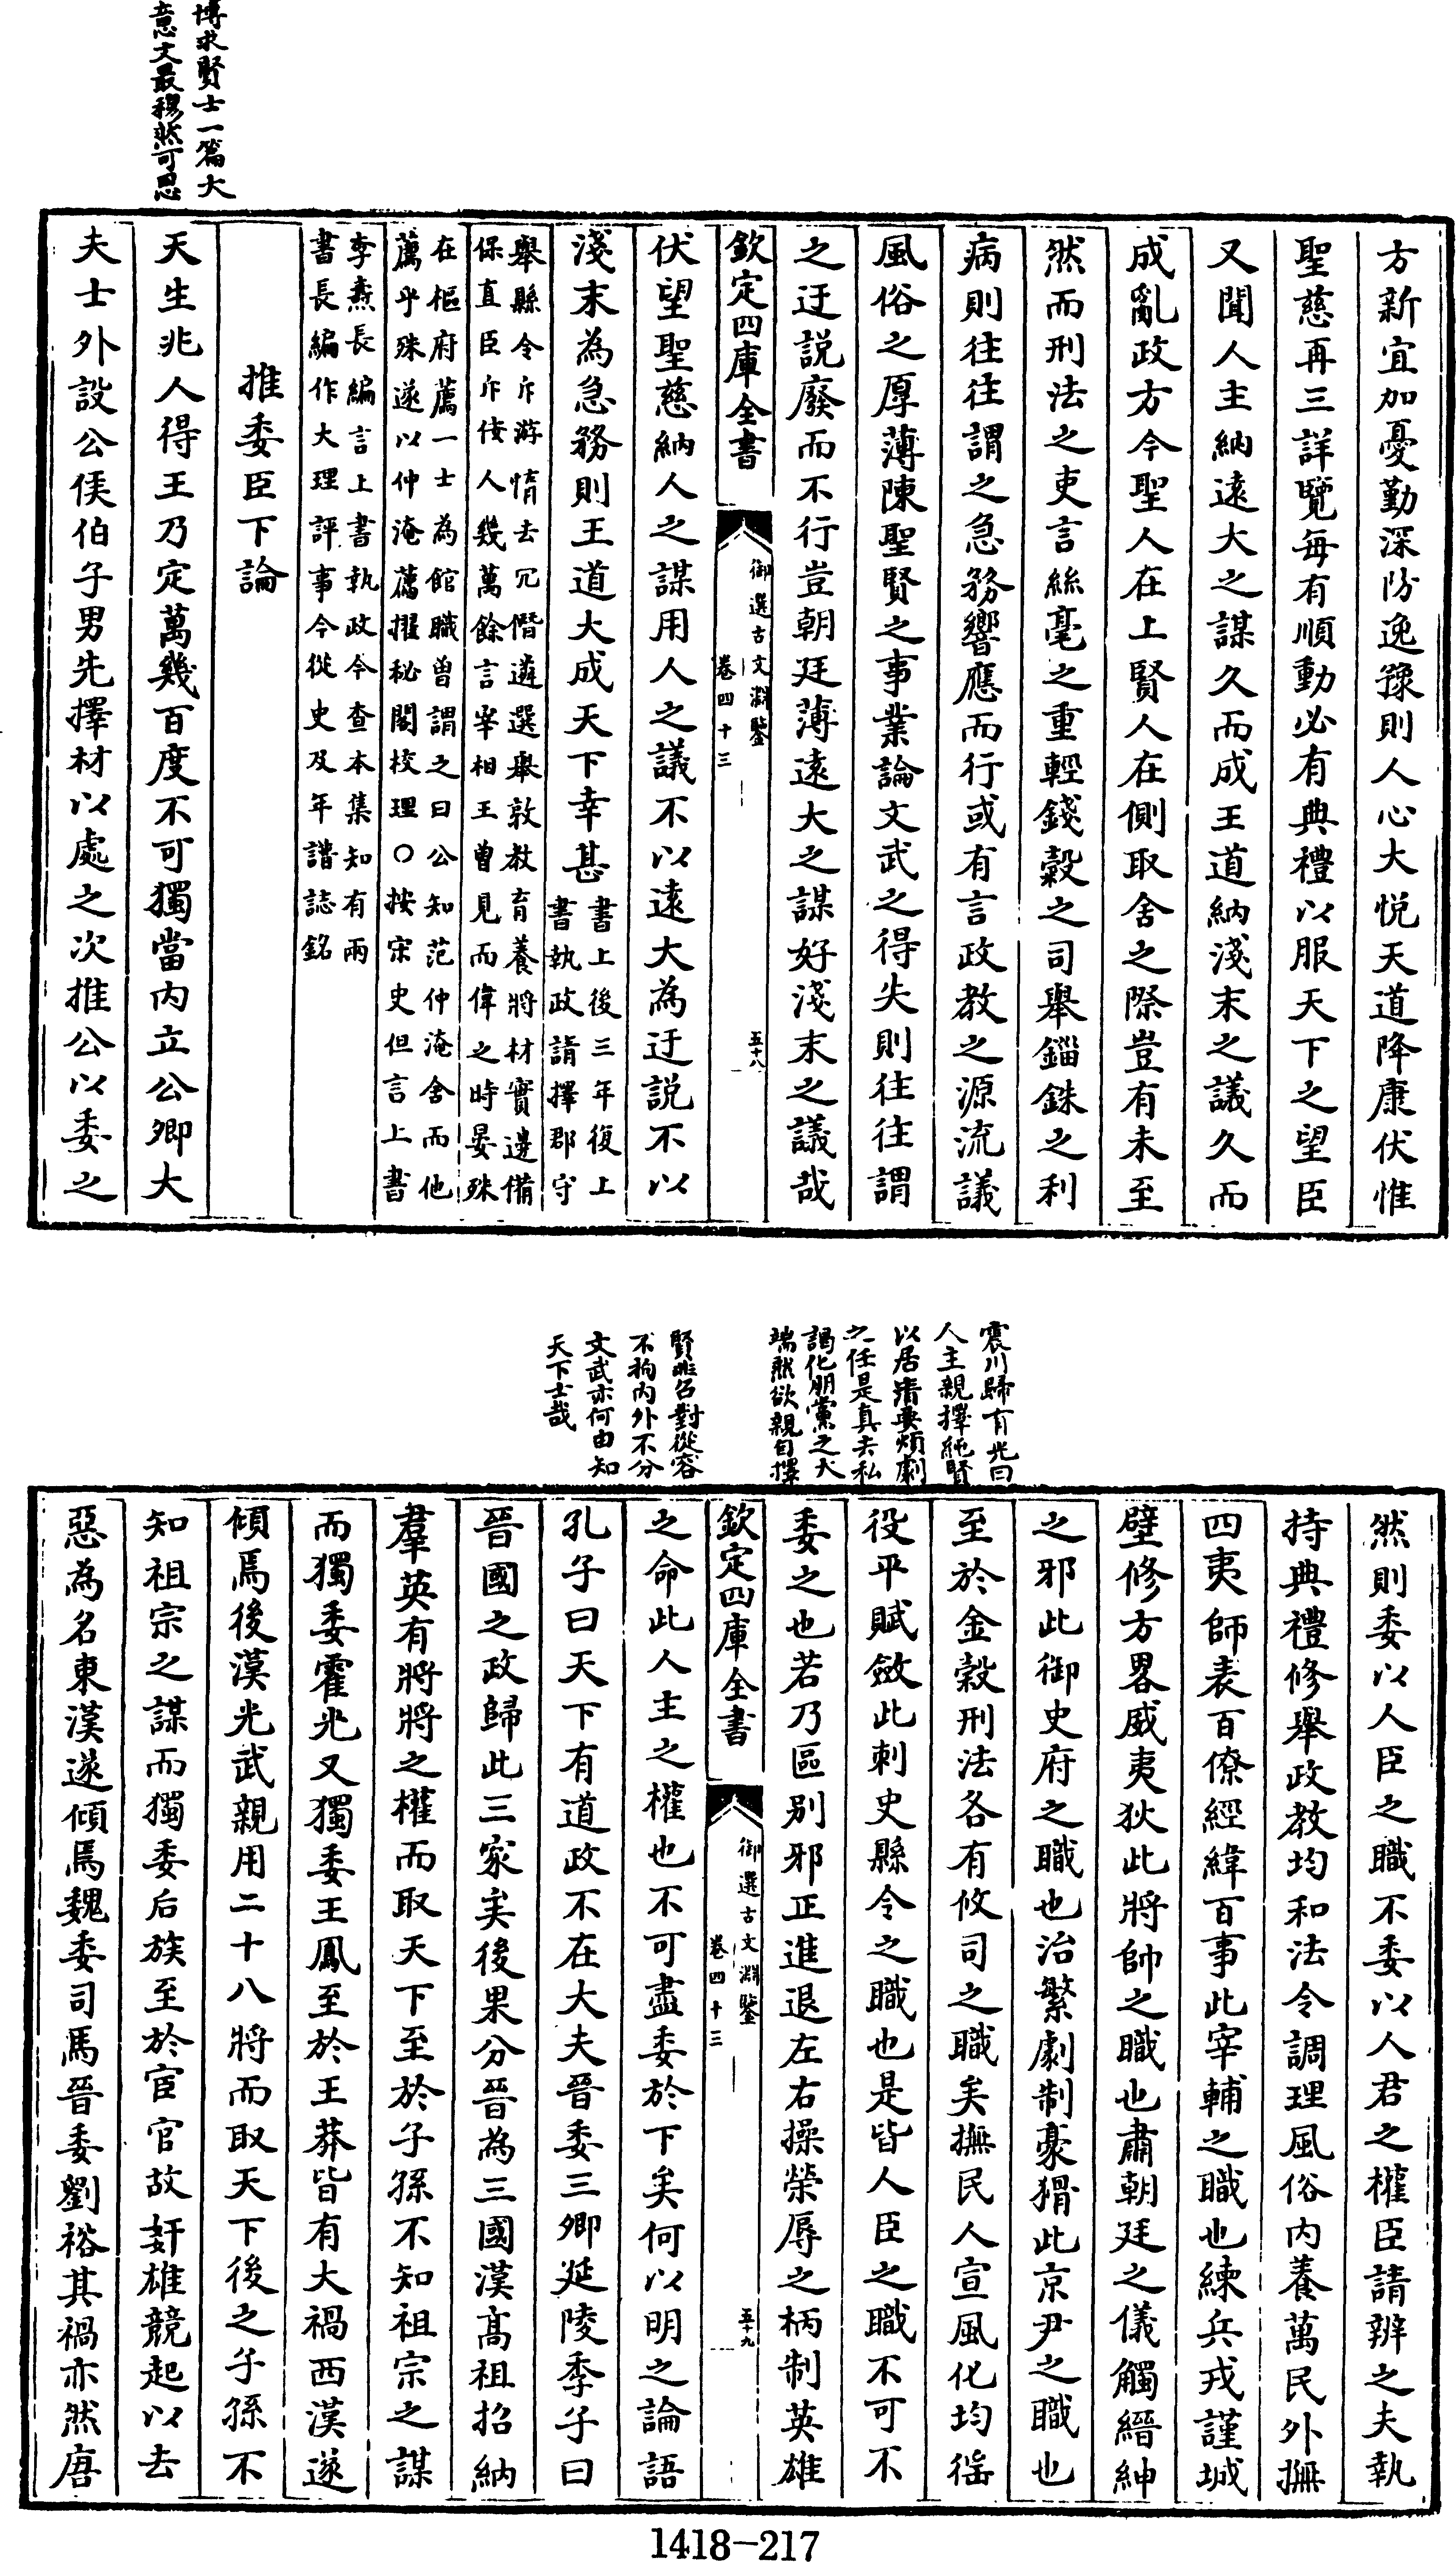 博求賢士一篇大
意文最穆然可思
方新宜加憂勤深防逸豫則人心大悅天道降康伏惟
聖慈再三詳覽每有順動必有典禮以服天下之望臣
又聞人主納遠大之謀久而成王道納淺末之議久而
成亂政方今聖人在上賢人在側取舍之際豈有未至
然而刑法之吏言絲毫之重輕錢穀之司舉錙銖之利
病則往往謂之急務響應而行或有言政教之源流議
風俗之厚薄陳聖賢之事業論文武之得失則往往謂
之迂説廢而不行豈朝廷薄遠大之謀好淺末之議哉
欽定四庫全書
御選古文淵鑒
卷四十三
五十八
伏望聖慈納人之謀用人之議不以遠大為迂説不以
淺末為急務則王道大成天下幸甚
書上後三年復上
書執政請擇郡守
舉縣令斥游惰去冗僭遴選舉敦教育養將材實邊備
保直臣斥佞人幾萬餘言宰相王曾見而偉之時晏殊
在樞府薦一士為館職曾謂之曰公知范仲淹舍而他
薦乎殊遂以仲淹薦擢秘閣校理○按宋史但言上書
李燾長編言上書執政今查本集知有兩
書長編作大理評事今從史及年譜誌銘
推委臣下論
天生兆人得王乃定萬幾百度不可獨當内立公卿大
夫士外設公侯伯子男先擇材以處之次推公以委之
震川歸有光曰
人主親擇純賢
以居清要煩劇
之任是真去私
謁化朋黨之大
端然欲親自擇
賢非召對從容
不拘内外不分
文武亦何由知
天下士哉
然則委以人臣之職不委以人君之權臣請辨之夫執
持典禮修舉政教均和法令調理風俗内養萬民外撫
四夷師表百僚經緯百事此宰輔之職也練兵戎謹城
壁修方畧威夷狄此將帥之職也肅朝廷之儀觸縉紳
之邪此御史府之職也治繁劇制豪猾此京尹之職也
至於金穀刑法各有攸司之職矣撫民人宣風化均徭
役平賦斂此刺史縣令之職也是皆人臣之職不可不
委之也若乃區别邪正進退左右操榮辱之柄制英雄
欽定四庫全書
御選古文淵鑒
卷四十三
五十九
之命此人主之權也不可盡委於下矣何以明之論語
孔子曰天下有道政不在大夫晉委三卿延陵季子曰
晉國之政歸此三家矣後果分晉為三國漢髙祖招納
羣英有將將之權而取天下至於子孫不知祖宗之謀
而獨委霍光又獨委王鳳至於王莽皆有大禍西漢遂
傾焉後漢光武親用二十八將而取天下後之子孫不
知祖宗之謀而獨委后族至於宦官故奸雄競起以去
惡為名東漢遂傾焉魏委司馬晉委劉裕其禍亦然唐
1418-217